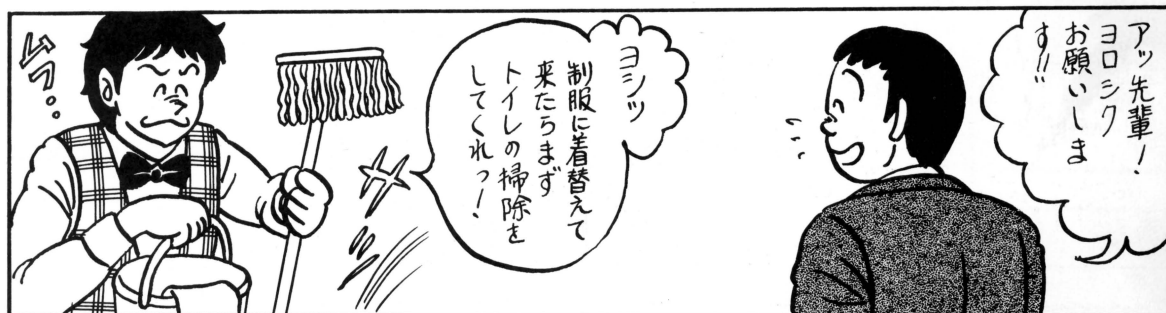 アッ先輩！
ヨロシク
お願いしま
す!!
ヨシッ
制服に着替えて
来たらまず
トイレの掃除を
してくれっ！
ムフ・・
サッ